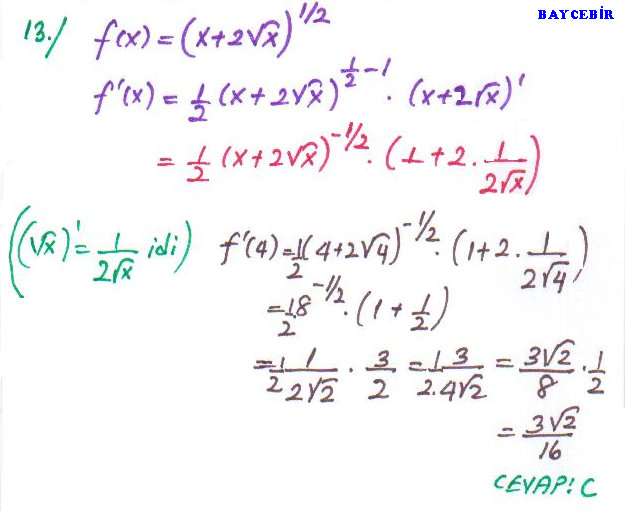 BAYCEBİR
13./ f(x) = (x+2√x)^{1/2}
f'(x) = 1/2 (x+2√x)^{1/2 - 1} · (x+2√x)'
= 1/2 (x+2√x)^{-1/2} · (1+2·1/(2√x))
((√x)' = 1/(2√x) idi) f'(4) = 1/2 (4+2√4)^{-1/2} · (1+2·1/(2√4))
= 1/2 · 8^{-1/2} · (1+1/2)
= 1/2 1/(2√2) · 3/2 = 1/2 · 3/(4√2) = 3√2/8 · 1/2
= 3√2/16
CEVAP: C